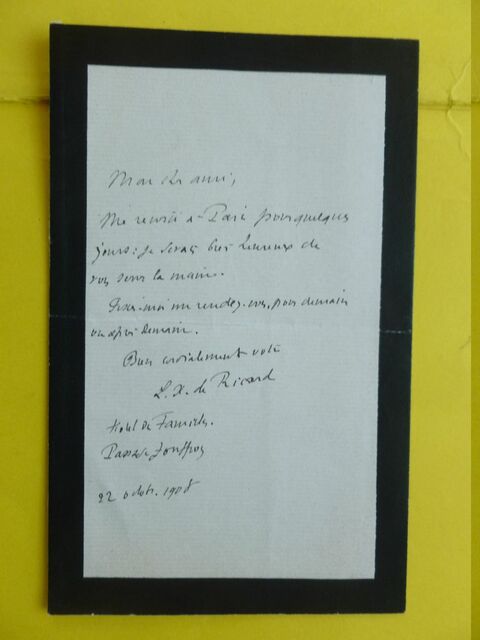 Mon cher ami,
Me voici à Paris pour quelques
jours : je serais bien heureux de
vous serrer la main.
Fixez-moi un rendez-vous, pour demain
ou après demain.
Bien cordialement votre
L. X. de Ricard
Hotel des Familles.
Passage Jouffroy
22 octob. 1908